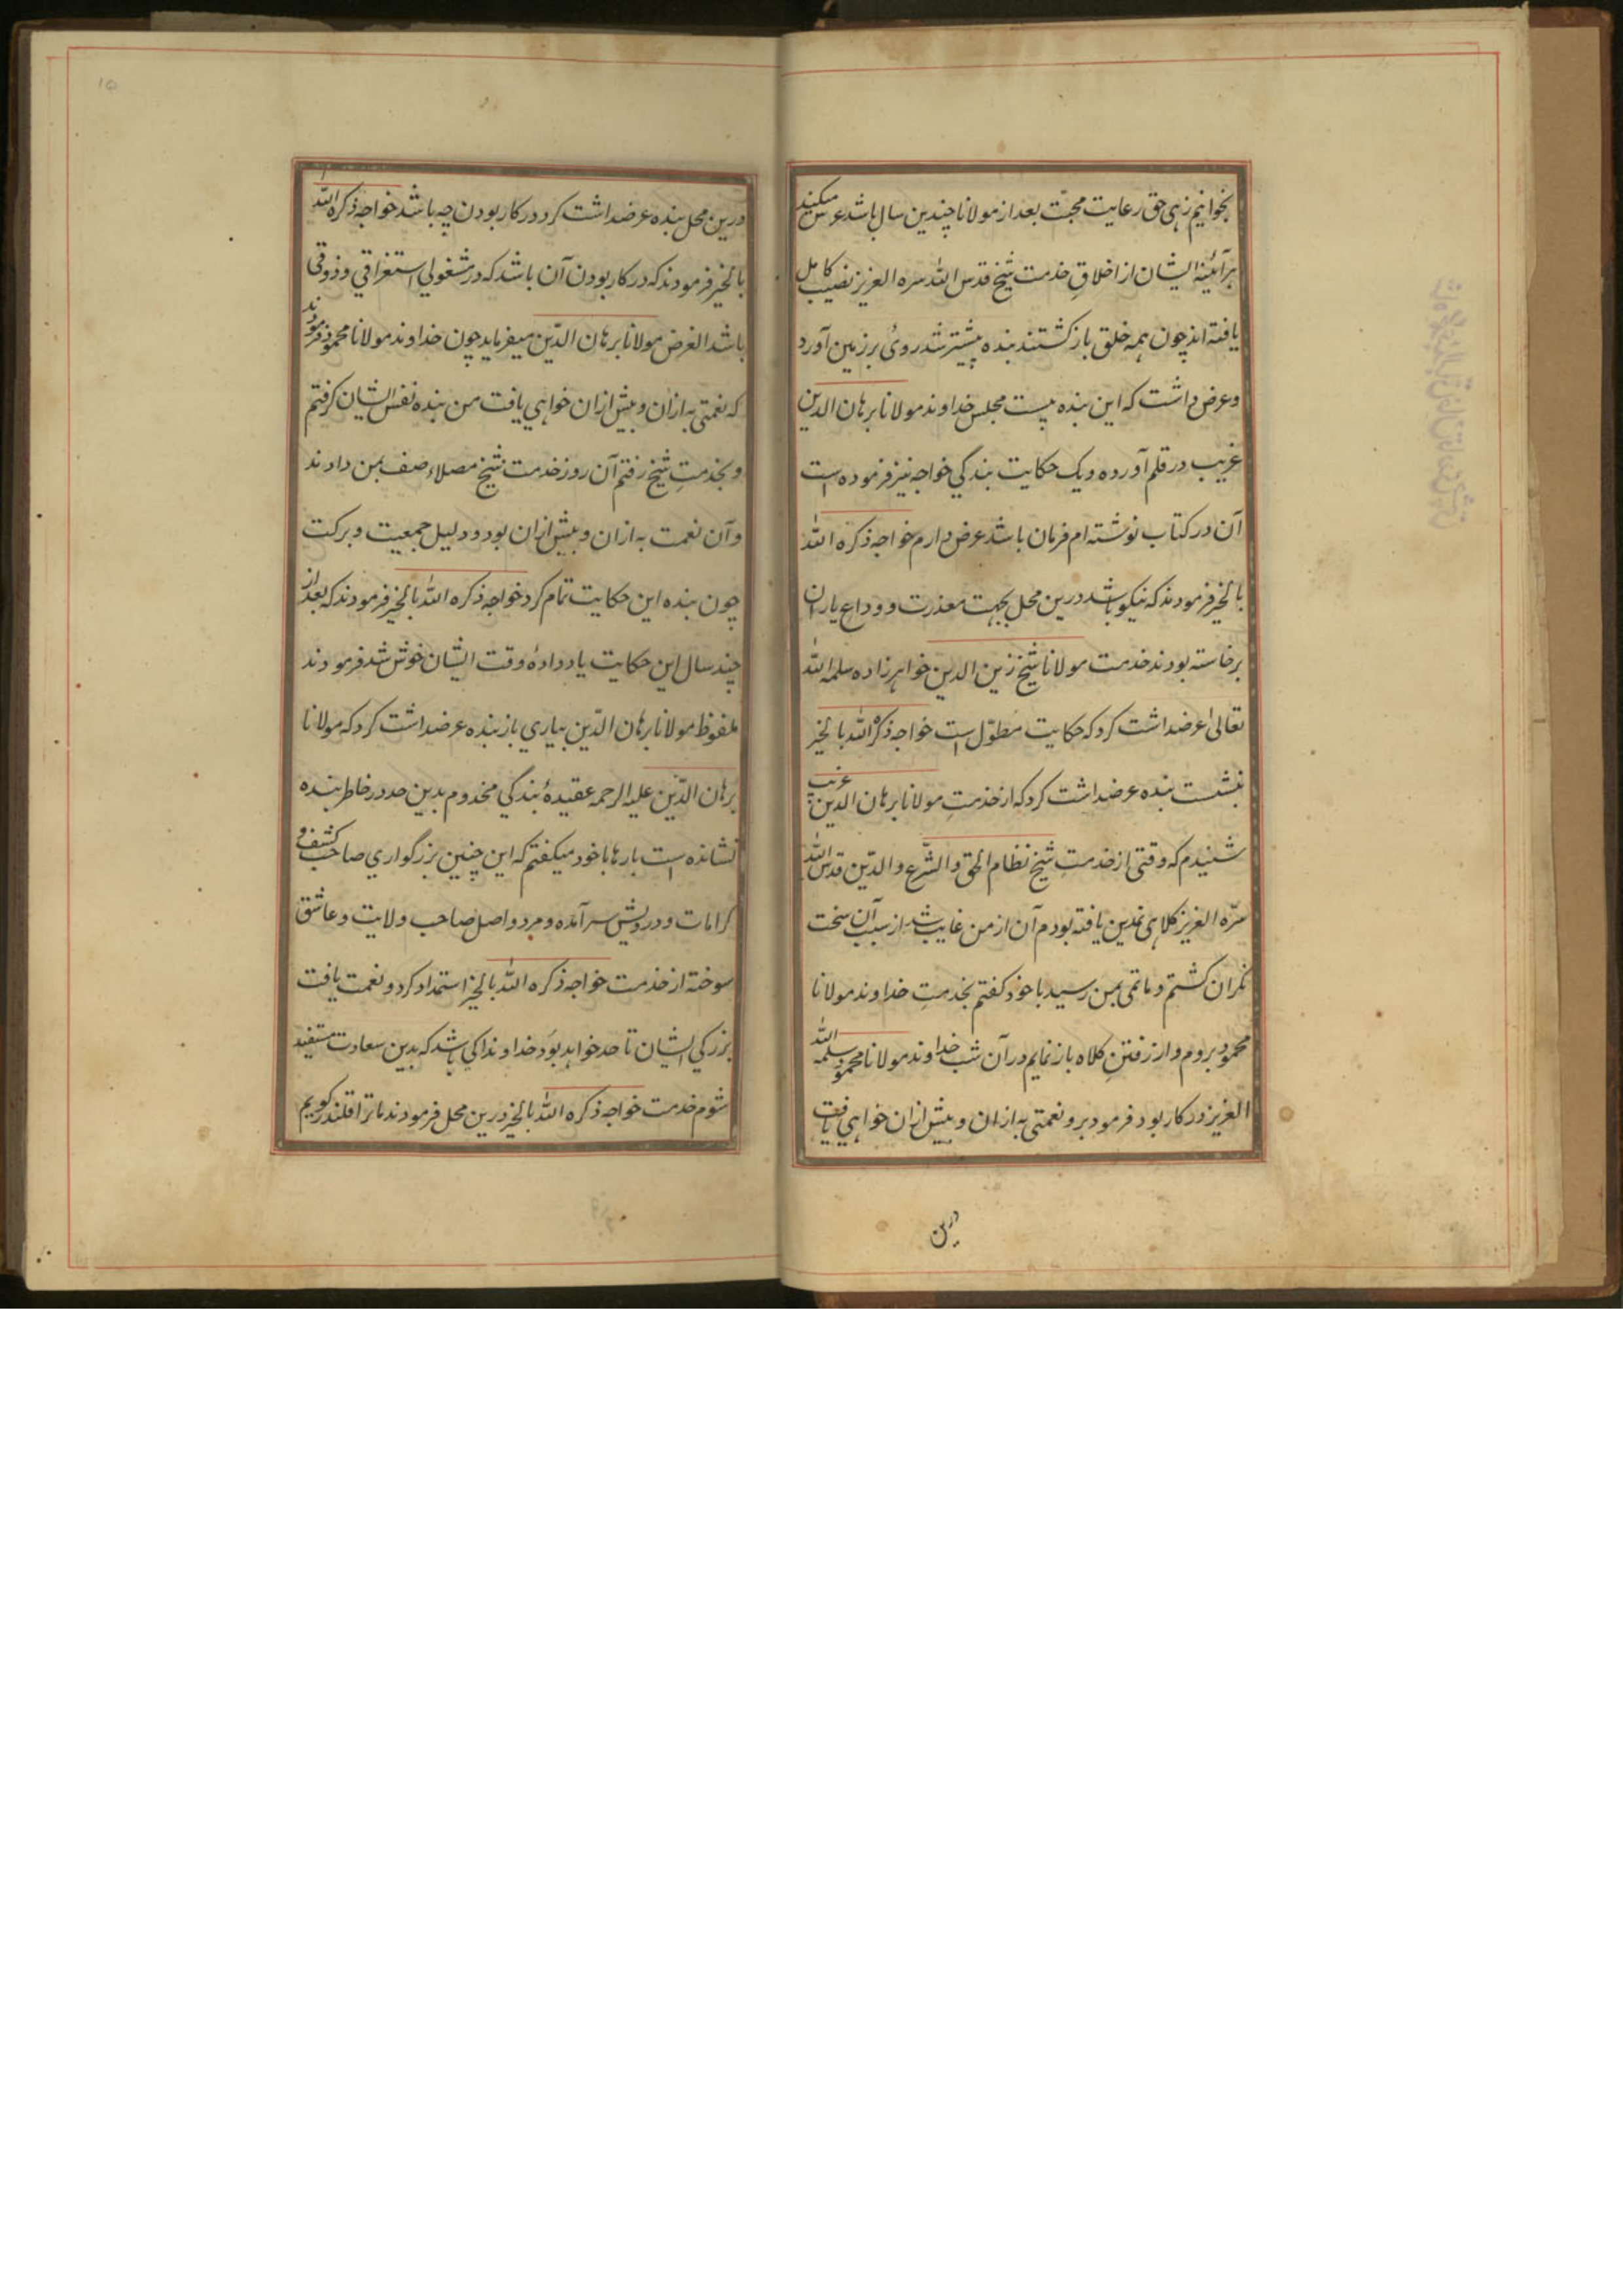 بخوانیم زهی حق رعایت محبّت بعد از مولانا چندین سال باشد عرس میکنید
هرآئینه ایشان از اخلاقِ خدمت شیخ قدس الله سره العزیز نصیب کامل
یافته‌اند چون همه خلق بازگشتند بنده پیشتر شد روئ بر زمین آورد
و عرض داشت که این بنده بیست مجلس خداوند مولانا برهان الدین
غریب در قلم آورده و یک حکایت بندگی خواجه نیز فرموده است
آن در کتاب نوشته‌ام فرمان باشد عرض دارم خواجه ذکره الله
بالخیر فرمودند که نیکو باشد درین محل بجهت معذرت و وداع یاران
برخاسته بودند خدمت مولانا شیخ زین الدین خواهرزاده سلمه الله
تعالیٰ عرضداشت کرد که حکایت مطوّل است خواجه ذکره الله بالخیر
بنشست بنده عرضداشت کرد که از خدمتِ مولانا برهان الدین غریب
شنیدم که وقتی از خدمتِ شیخ نظام الحق والشّرع والدّین قدس الله
سرّه العزیز کلاهی نمدین یافته بودم آن از من غایب شد از سبب آن سخت
نگران گشتم و ماتمی بمن رسید با خود گفتم بخدمتِ خداوند مولانا
محمود بروم و از رفتنِ کلاه باز نمایم در آن شب خداوند مولانا محمود سلمه الله
العزیز در کار بود فرمود برو نعمتی به ازان و بیش ازان خواهی یافت
درین
درین محل بنده عرضداشت کرد در کار بودن چه باشد خواجه ذکره الله
بالخیر فرمودند که در کار بودن آن باشد که در مشغولی استغراقی و ذوقی
باشد الغرض مولانا برهان الدّین میفرماید چون خداوند مولانا محمود فرمودند
که نعمتی به ازان و بیش ازان خواهی یافت من بنده نفس ایشان گرفتم
و بخدمتِ شیخ رفتم آن روز خدمت شیخ مصلاء صف بمن دادند
و آن نعمت به ازان و بیش ازان بود و دلیل جمعیت و برکت
چون بنده این حکایت تمام کرد خواجه ذکره الله بالخیر فرمودند که بعد از
چند سال این حکایت یاد دادهٔ وقت ایشان خوش شد فرمودند
ملفوظ مولانا برهان الدّین بیاری باز بنده عرضداشت کرد که مولانا
برهان الدّین علیه الرحمه عقیدهٔ بندگی مخدوم بدین حد در خاطر بنده
نشانده است بارها با خود میگفتم که این چنین بزرگواری صاحب کشف و
کرامات و درویش سرآمده و مرد واصل صاحب ولایت و عاشق
سوخته از خدمت خواجه ذکره الله بالخیر استمداد کرد و نعمت یافت
بزرگی ایشان تا حد خواهد بود خداوندا کی باشد که بدین سعادت مستفید
شوم خدمت خواجه ذکره الله بالخیر درین محل فرمودند ما ترا قلندر گویم